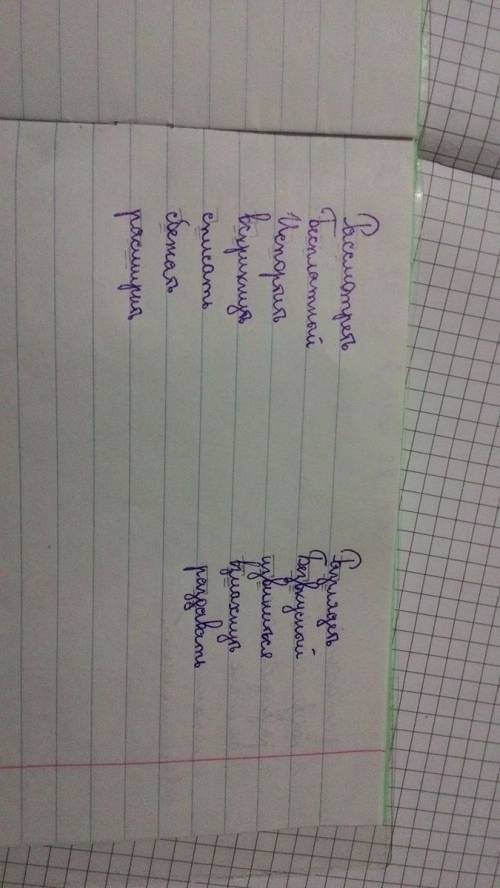 Рассмотреть Разглядеть
Бесплатный Безвкусный
Испортить извиниться
вскрикнуть взмахнуть
списать раздавать
сбежать
расширить